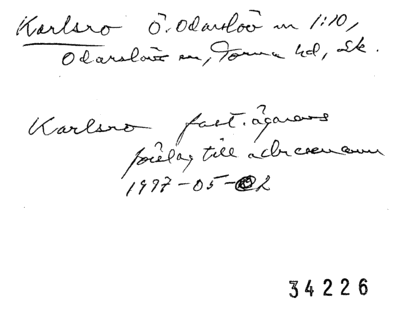 Karlsro Ö. Odarslöv m 1:10,
Odarslövs sn, Torna hd, Sk.
Karlsro fast.ägarens
förslag till adressnamn
1997-05-02
34226